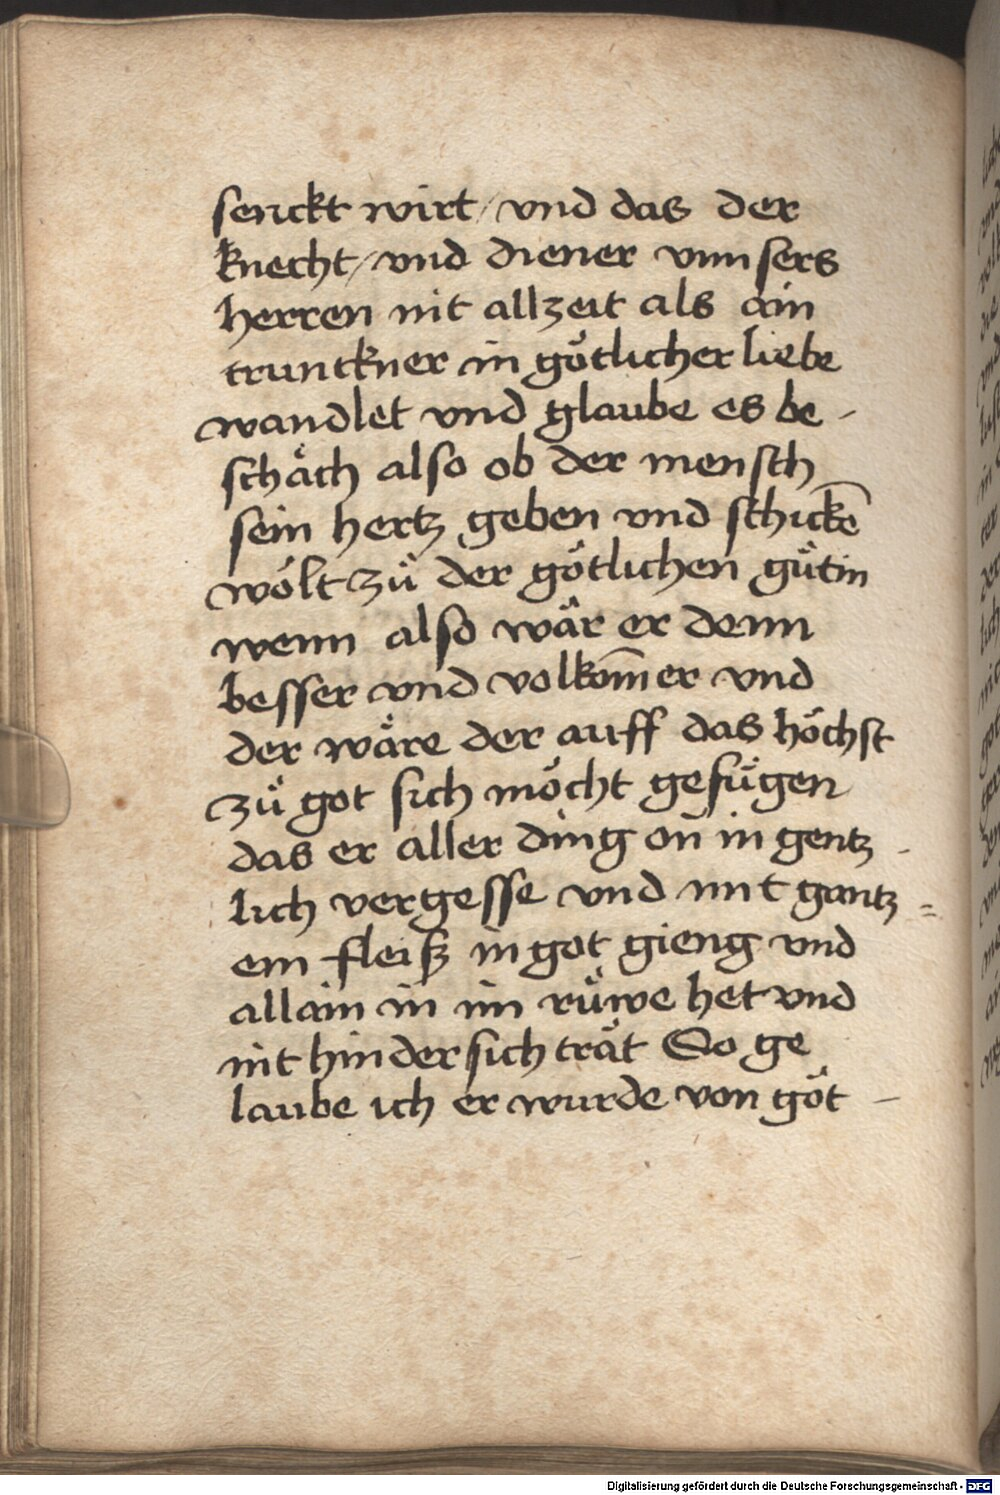 senckt wirt / vnd das der
knecht / vnd diener vnnsers
herren nit allzeit als ain
trunckner in götlicher liebe
wandlet vnd glaube es be -
schäch also ob der mensch
sein hertz geben vnd schickē
wölt zu͗ der götlichen gu͗tin
wenn also wär er denn
besser vnd volkom̄er vnd
der wäre der auff das höchst
zu͗ got sich möcht gefu͗gen
das er aller ding on in gentz -
lich vergesse vnd mit gantz =
em fleiß in got gieng vnd
allain in im ru͗we het vnd
nit hinder sich trät So ge
laube ich er wurde von göt -
Digitalisierung gefördert durch die Deutsche Forschungsgemeinschaft - DFG